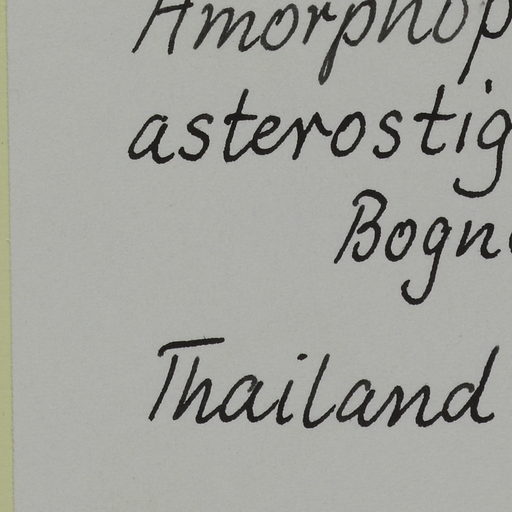 Amorphop
asterostig
Bogn
Thailand